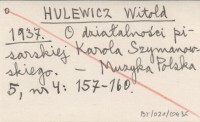 HULEWICZ Witold
1937. O działalności pi-
sarskiej Karola Szymanow-
skiego. – Muzyka Polska
5, nr 4: 157-160.